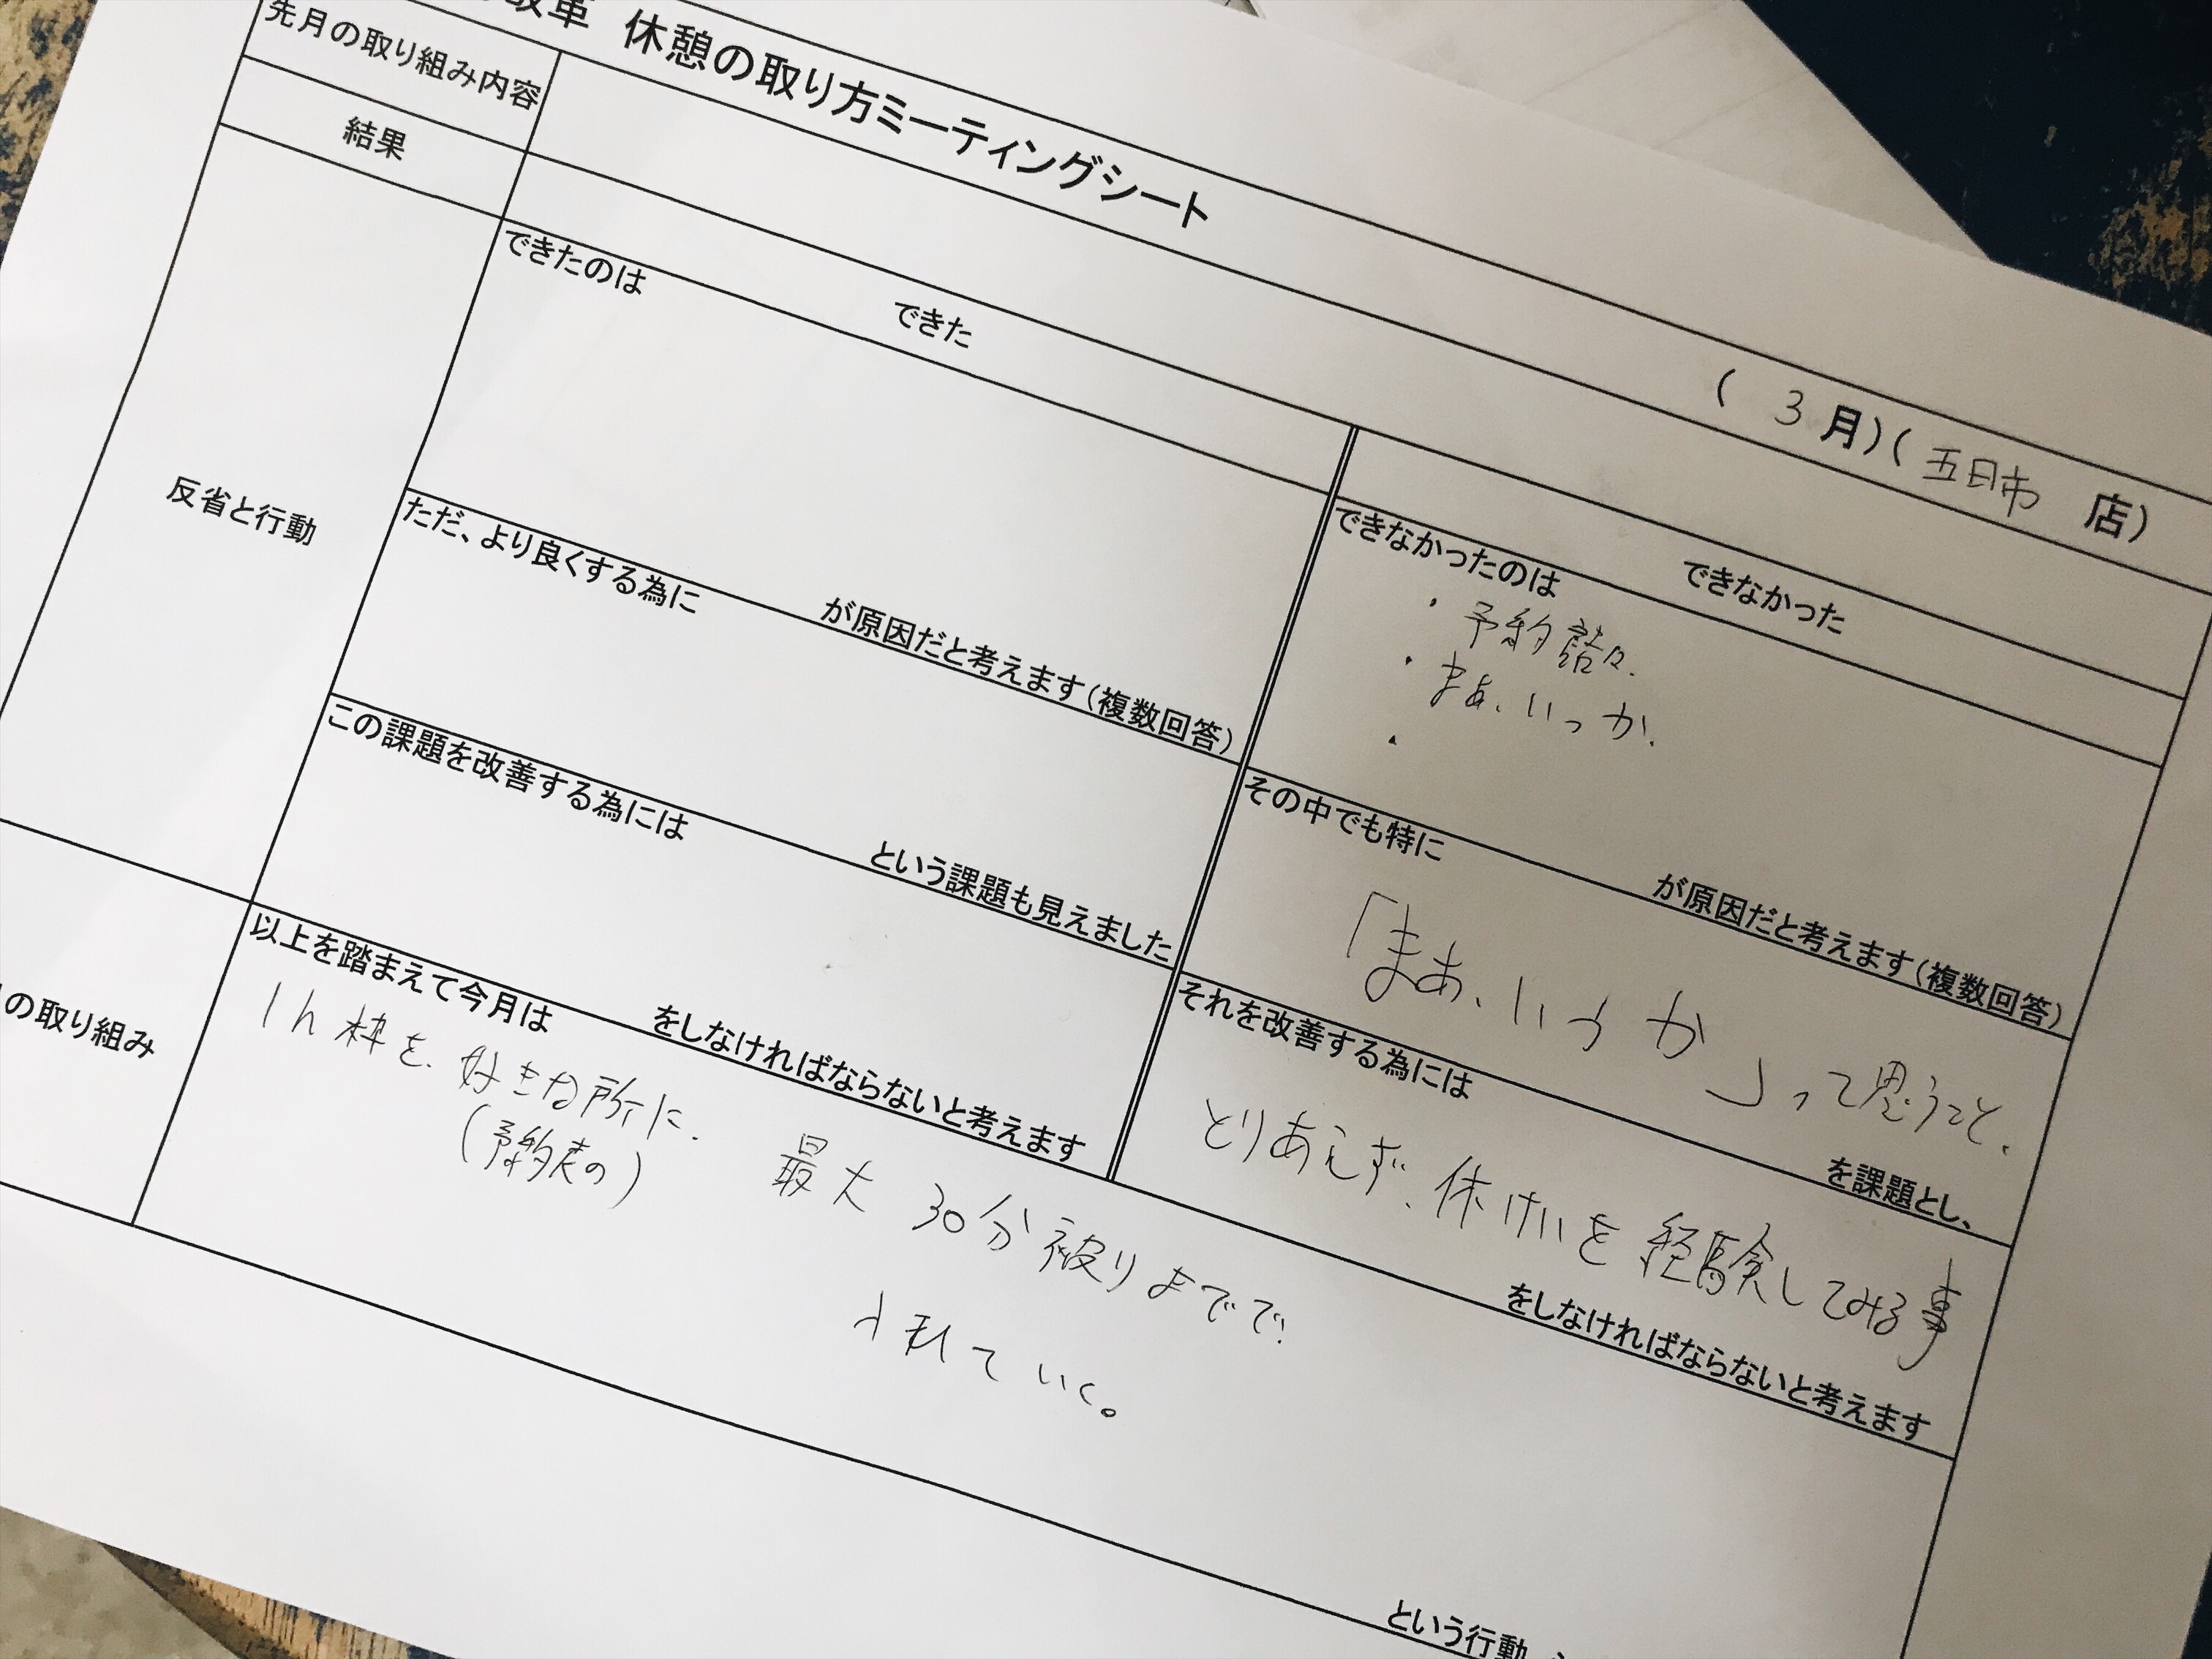 改革 休憩の取り方ミーティングシート
( 3 月)( 五日市 店)
先月の取り組み内容
結果
できた
できなかった
反省と行動
できたのは
が原因だと考えます(複数回答)
ただ、より良くする為に
という課題も見えました
この課題を改善する為には
をしなければならないと考えます
できなかったのは
・予約詰々.
・まあ、いっか.
・
が原因だと考えます(複数回答)
その中でも特に
「まあ、いっか」って思うこと、
を課題とし、
それを改善する為には
とりあえず、休けいを経験してみる事
をしなければならないと考えます
の取り組み
以上を踏まえて今月は
1h枠を、好きな所に.
(予約表の)
最大 30分被りまでで、
ていく。
という行動